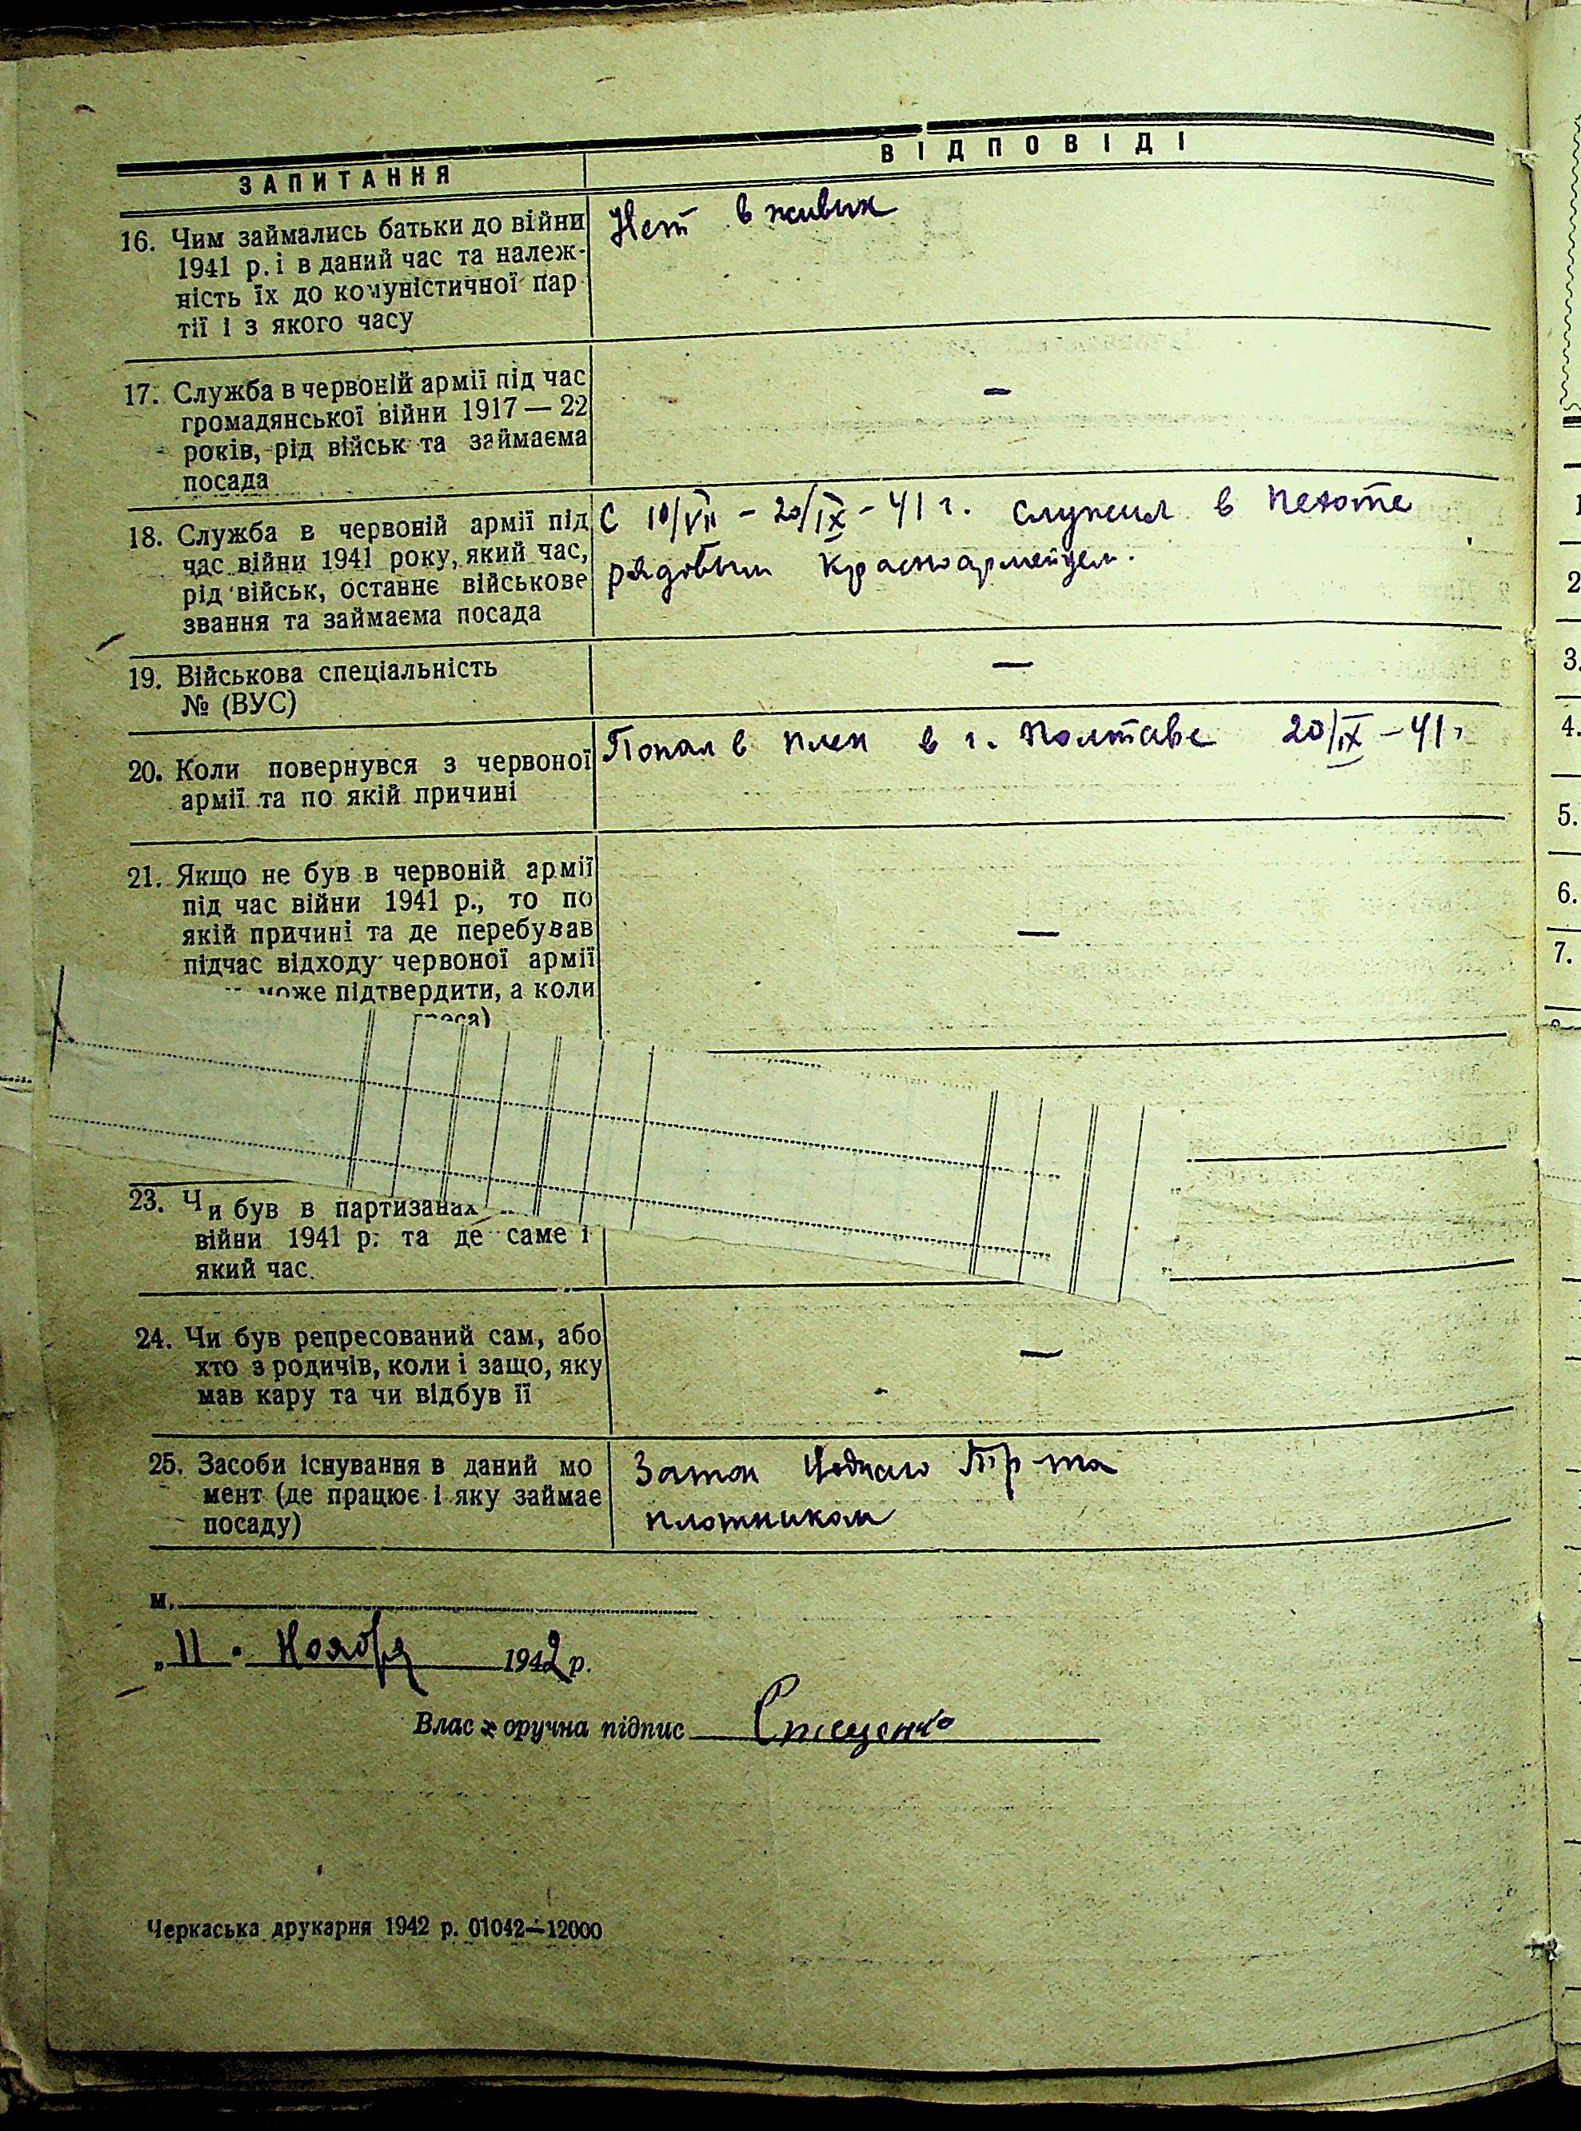 ЗАПИТАННЯ
ВІДПОВІДІ
16. Чим займались батьки до війни
1941 р. і в даний час та належ-
ність їх до комуністичної пар
тії і з якого часу
Нет в живих
17. Служба в червоній армії під час
громадянської війни 1917 — 22
років, рід військ та займаєма
посада
—
18. Служба в червоній армії під
час війни 1941 року, який час,
рід військ, останнє військове
звання та займаєма посада
С 10/VII - 20/IX - 41 г. служил в пехоте
рядовым красноармейцем.
19. Військова спеціальність
№ (ВУС)
—
20. Коли повернувся з червоної
армії та по якій причині
Попал в плен в г. Полтаве 20/IX - 41 г
21. Якщо не був в червоній армії
під час війни 1941 р., то по
якій причині та де перебував
підчас відходу червоної армії
може підтвердити, а коли
—
23. Чи був в партизанах
війни 1941 р. та де саме і
який час.
24. Чи був репресований сам, або
хто з родичів, коли і защо, яку
мав кару та чи відбув її
—
25. Засоби існування в даний мо
мент (де працює і яку займає
посаду)
Затон Водного Тр-та
плотником
м.
„11" Ноября 1942 р.
Власноручна підпис
Черкаська друкарня 1942 р. 01042—12000
1
2
3.
4.
5.
6.
7.